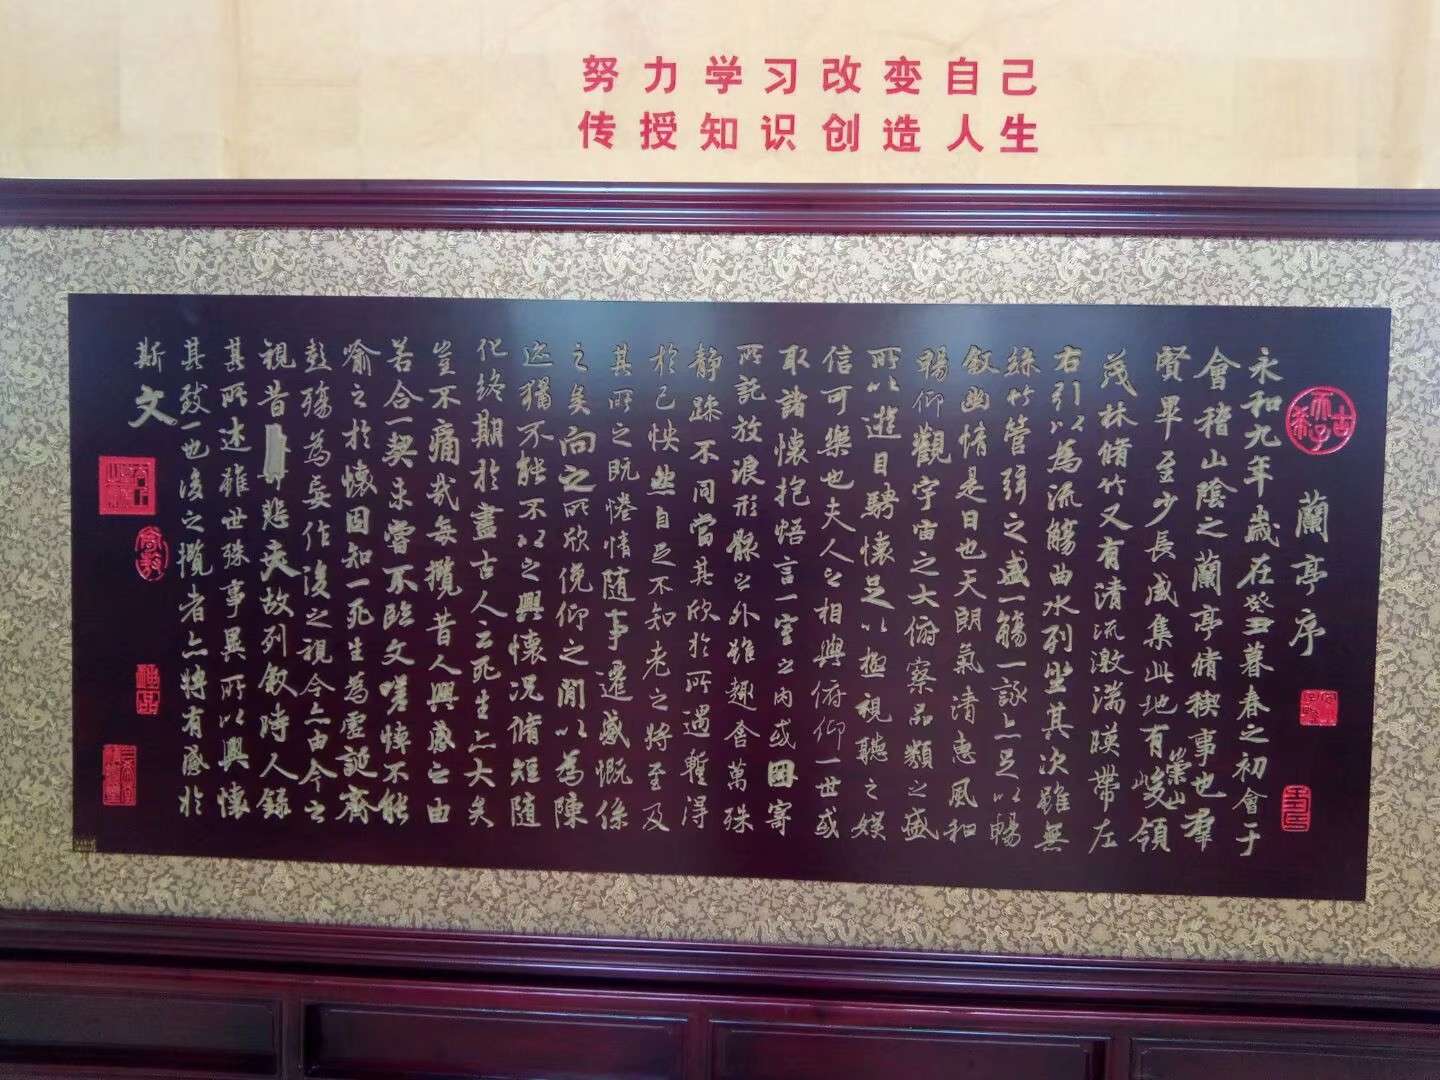 努力学习改变自己
传授知识创造人生
蘭亭序
永和九年歲在癸丑暮春之初會于
會稽山陰之蘭亭脩稧事也羣
賢畢至少長咸集此地有崇山峻領
茂林脩竹又有清流激湍暎帶左
右引以為流觴曲水列坐其次雖無
絲竹管弦之盛一觴一詠亦足以暢
敘幽情是日也天朗氣清惠風和
暢仰觀宇宙之大俯察品類之盛
所以遊目騁懷足以極視聽之娛
信可樂也夫人之相與俯仰一世或
取諸懷抱悟言一室之內或因寄
所託放浪形骸之外雖趣舍萬殊
靜躁不同當其欣於所遇暫得
於己怏然自足不知老之將至及
其所之既惓情隨事遷感慨係
之矣向之所欣俛仰之閒以為陳
迹猶不能不以之興懷況脩短隨
化終期於盡古人云死生亦大矣
豈不痛哉每攬昔人興感之由
若合一契未嘗不臨文嗟悼不能
喻之於懷固知一死生為虛誕齊
彭殤為妄作後之視今亦由今之
視昔悲夫故列敘時人錄
其所述雖世殊事異所以興懷
其致一也後之攬者亦將有感於
斯文